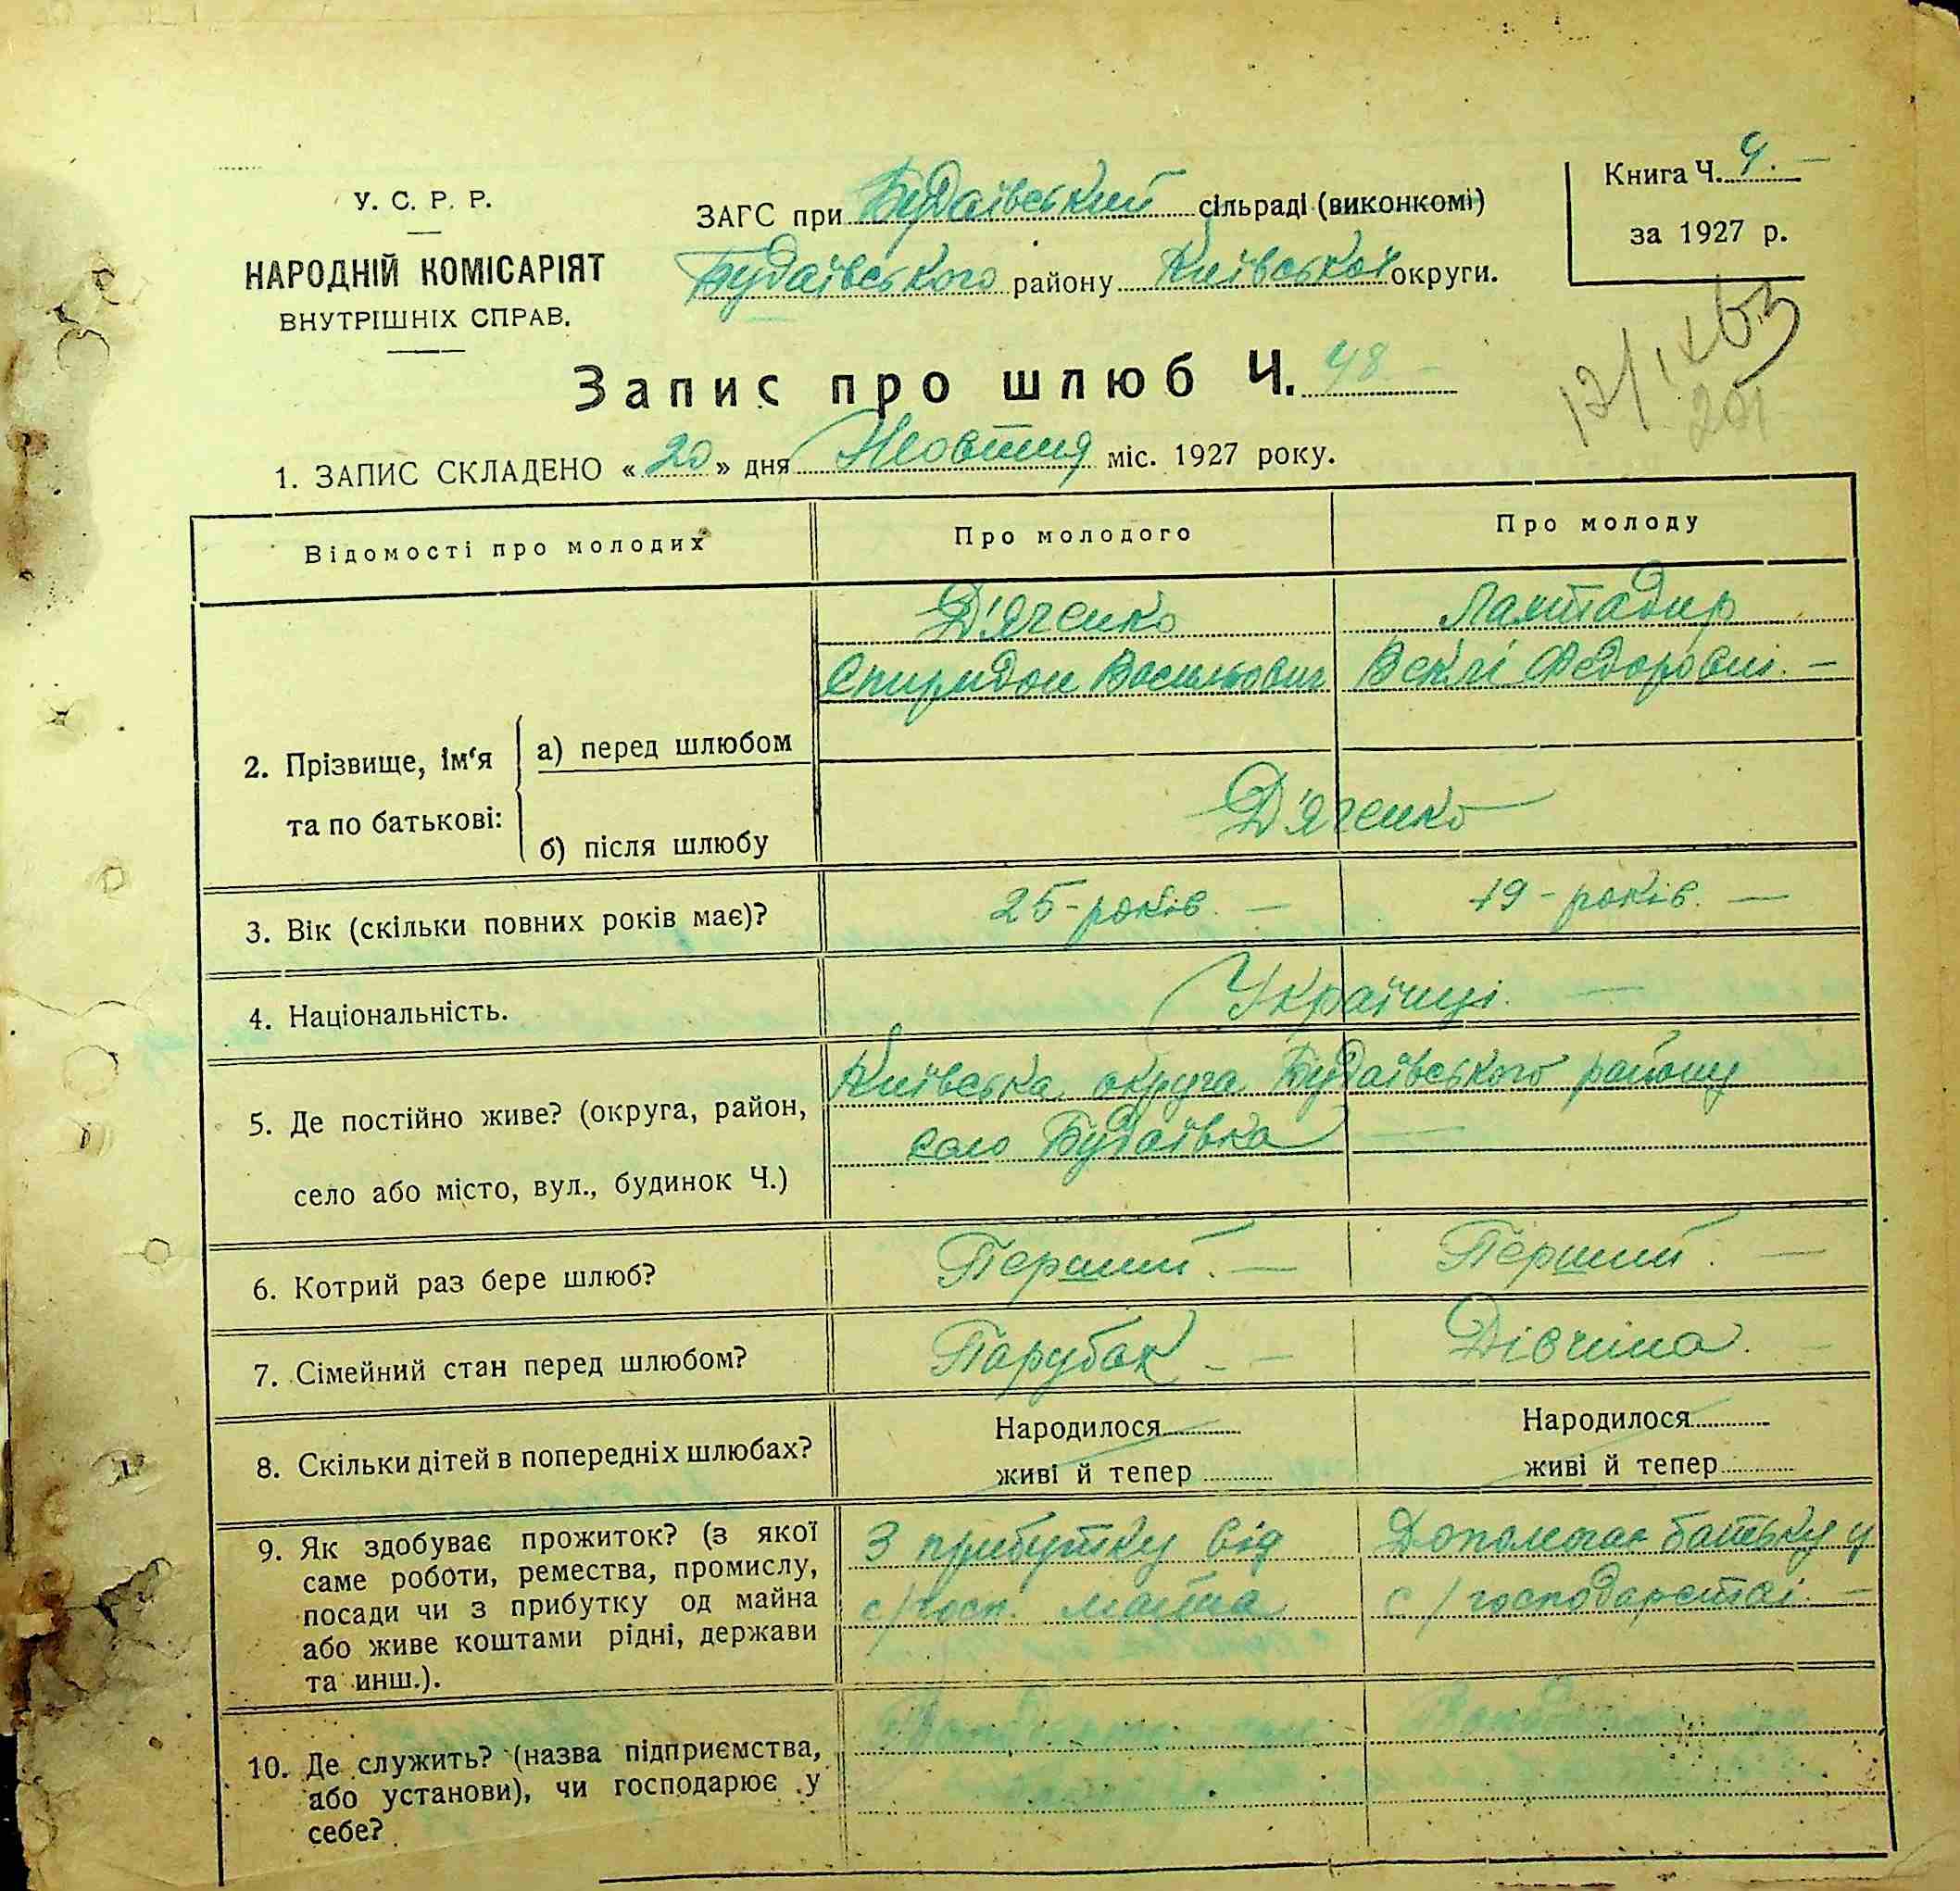 У. С. Р. Р.
НАРОДНІЙ КОМІСАРІЯТ
ВНУТРІШНІХ СПРАВ.
ЗАГС при Будаївський сільраді (виконкомі)
Будаївського району Київської округи.
Книга Ч. 4.
за 1927 р.
Запис про шлюб Ч. 48
1. ЗАПИС СКЛАДЕНО « 20 » дня Жовтня міс. 1927 року.
Відомості про молодих
Про молодого
Про молоду
2. Прізвище, ім‘я та по батькові:
а) перед шлюбом
Д'яченко
Спиридон Васильович
Федоровні.
б) після шлюбу
Д'яченко
3. Вік (скільки повних років має)?
25 - років. —
19 - років. —
4. Національність.
Українці. —
5. Де постійно живе? (округа, район,
село або місто, вул., будинок Ч.)
Київська округа Будаївського району
село Будаївка —
6. Котрий раз бере шлюб?
Перший. —
Перший. —
7. Сімейний стан перед шлюбом?
Парубок - —
Дівчина. —
8. Скільки дітей в попередніх шлюбах?
Народилося
живі й тепер
Народилося
живі й тепер
9. Як здобуває прожиток? (з якої
саме роботи, ремества, промислу,
посади чи з прибутку од майна
або живе коштами рідні, держави
та инш.).
З прибутку від
с/госп. майна
Допомогає батьку у
с/господарстві. —
10. Де служить? (назва підприємства,
або установи), чи господарює у
себе?